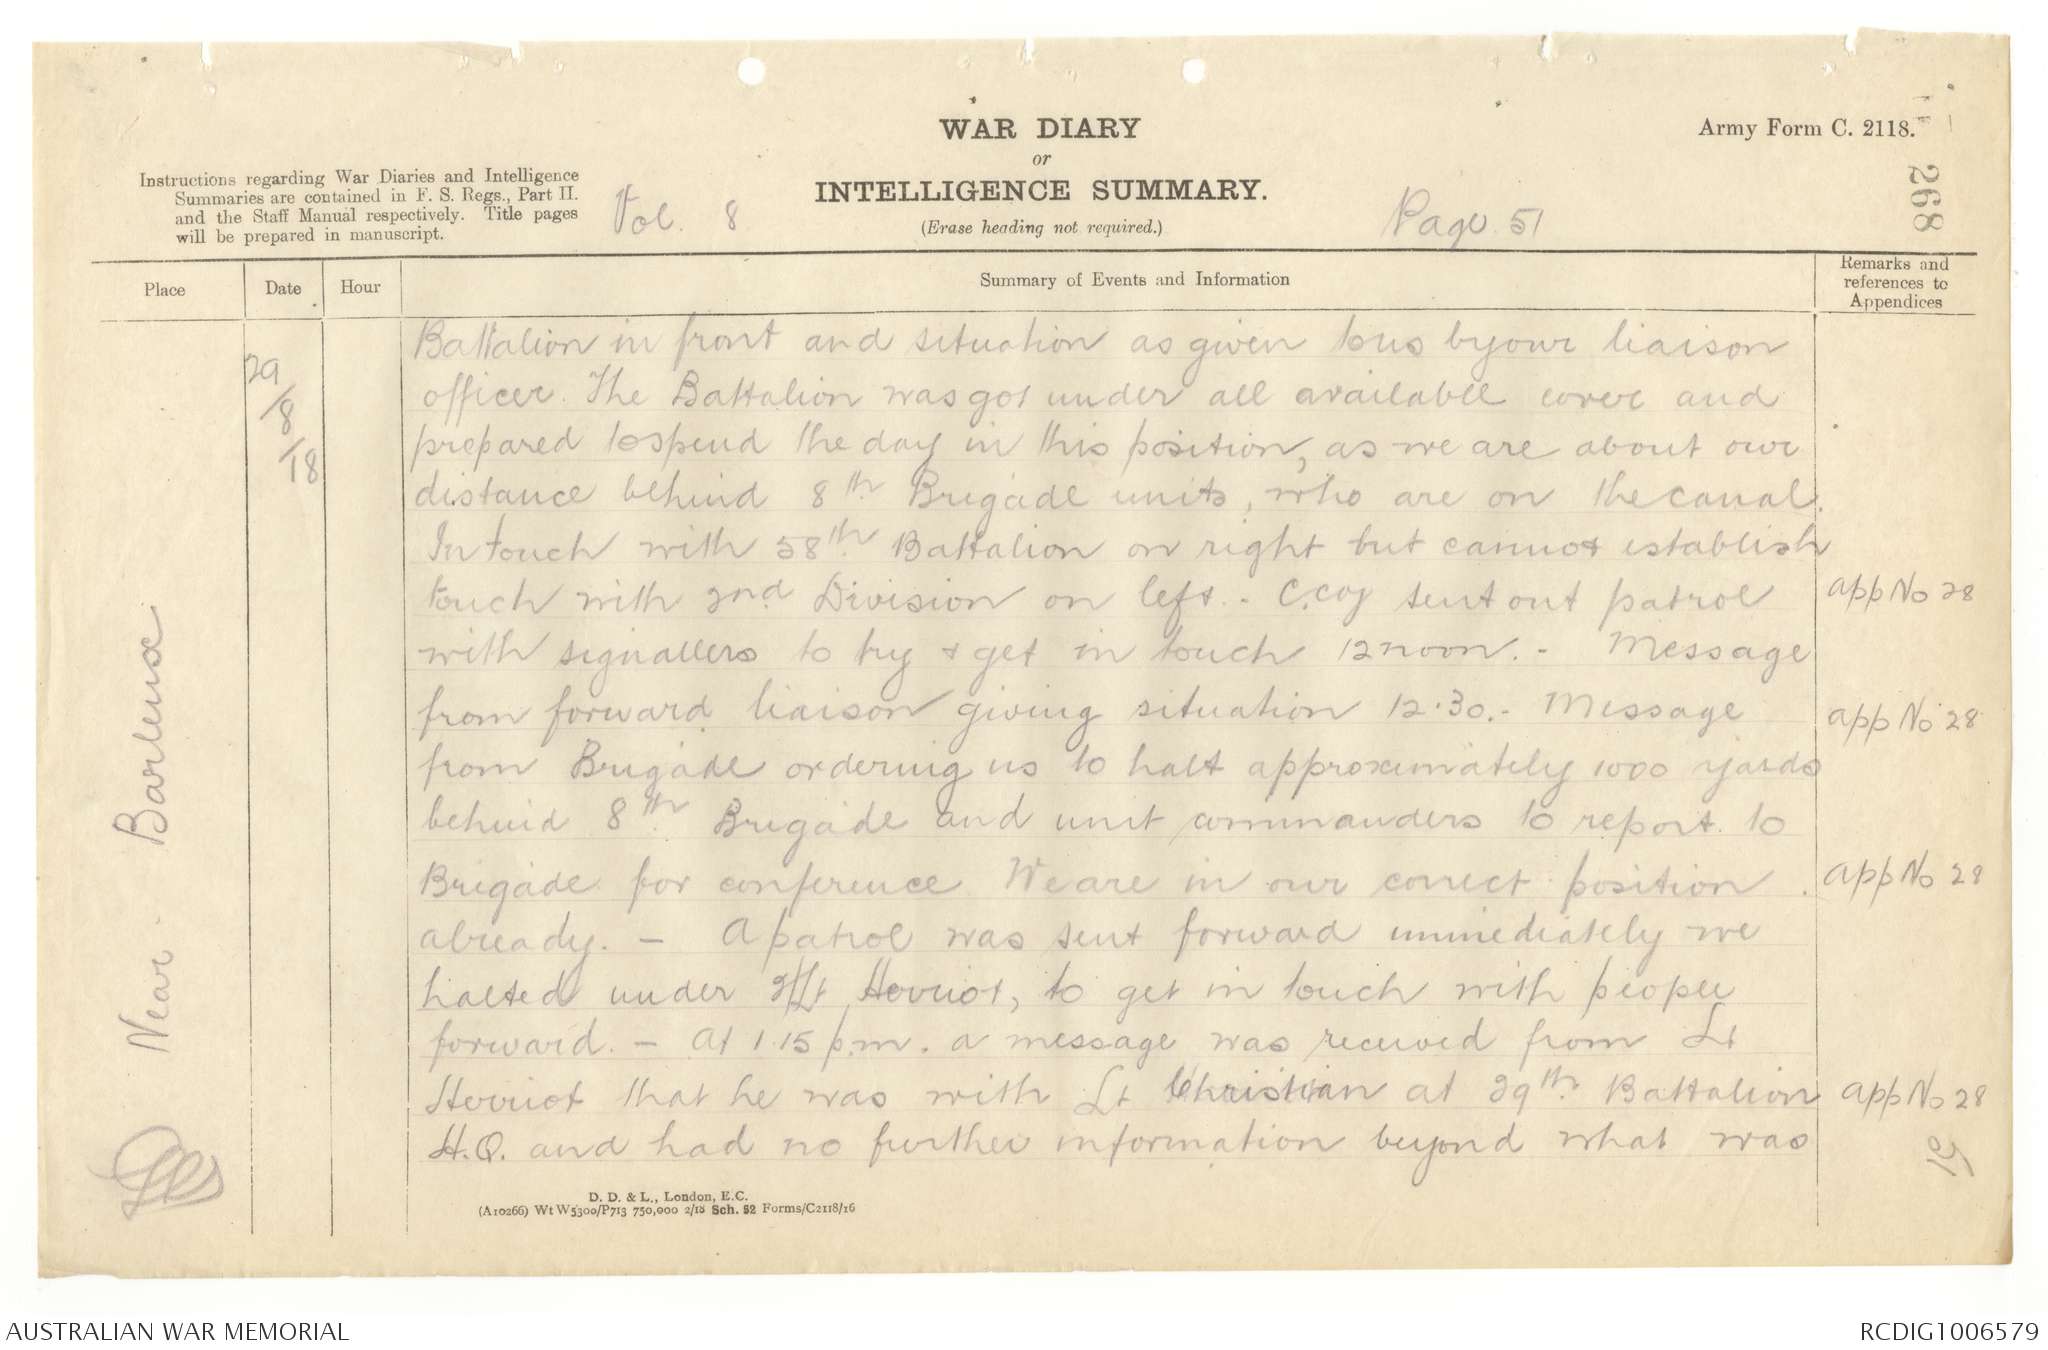 WAR DIARY
or
INTELLIGENCE SUMMARY.
(Erase heading not required.)
Army Form C. 2118.
268
Instructions regarding War Diaries and Intelligence
Summaries are contained in F. S. Regs., Part II.
and the Staff Manual respectively. Title pages
will be prepared in manuscript.
Vol. 8
Page 51
Place
Date
Hour
Summary of Events and Information
Remarks and
references to
Appendices
Near Barleux
29
/8
/18
Battalion in front and situation as given to us by our liaison
officer. The Battalion was got under all available cover and
prepared to spend the day in this position, as we are about our
distance behind 8th Brigade units, who are on the canal.
In touch with 58th Battalion on right but cannot establish
touch with 2nd Division on left. - C. coy sent out patrol
app No 28
with signallers to try & get in touch 12 noon. - Message
from forward liaison giving situation 12.30. - Message
app No 28
from Brigade ordering us to halt approximately 1000 yards
behind 8th Brigade and unit commanders to report to
Brigade for conference. We are in our correct position
app No 28
already. - A patrol was sent forward immediately we
halted under 2/Lt Herriot, to get in touch with people
forward. - At 1.15 p.m. a message was received from Lt
Herriot that he was with Lt Christian at 29th Battalion
app No 28
H.Q. and had no further information beyond what was
D. D. & L., London, E.C.
(A10266) Wt W5300/P713 750,000 2/18 Sch. 52 Forms/C2118/16
AUSTRALIAN WAR MEMORIAL
RCDIG1006579